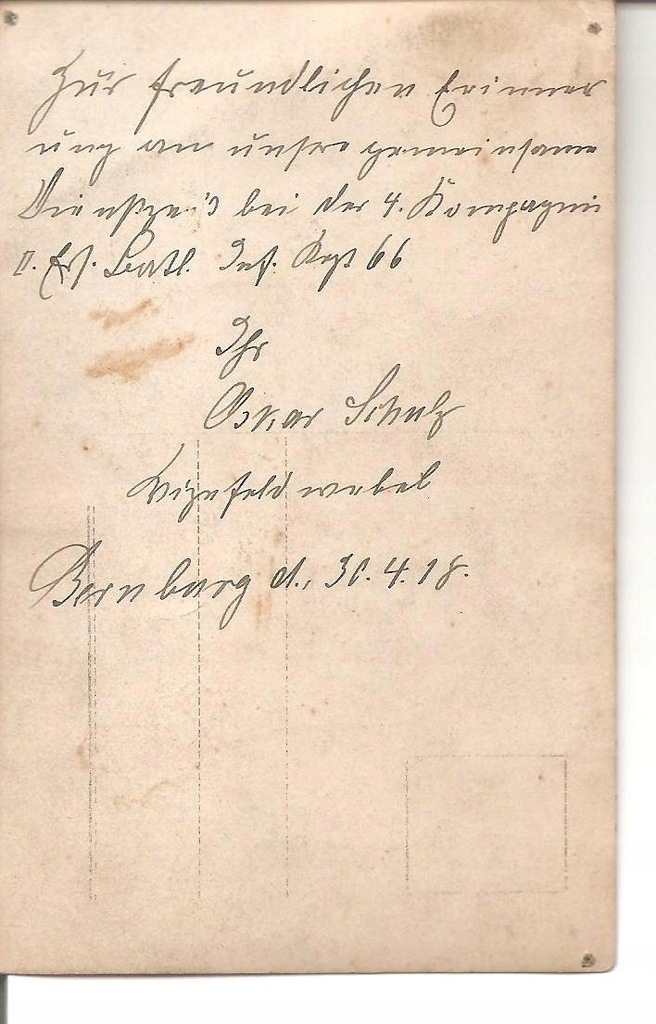 Zur freundlichen Erinner
ung an unsre gemeinsame
Dienstzeit bei der 4. Kompagnie
II. Ers. Batl. Inf. Regt 66
Ihr
Oskar Schulz
Vizefeldwebel
Bernburg d., 30.4.18.